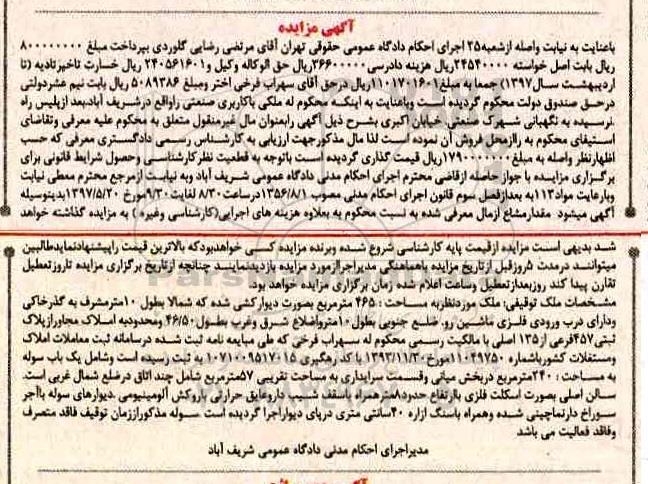 آگهی مزایده
باعنایت به نیابت واصله ازشعبه۲۵ اجرای احکام دادگاه عمومی حقوقی تهران آقای مرتضی رضایی گلوردی بپرداخت مبلغ ۸۰۰۰۰۰۰۰۰
ریال بابت اصل خواسته ۲۴۵۴۰۰۰۰ ریال هزینه دادرسی۳۶۶۰۰۰۰۰ریال حق الوکاله وکیل و۲۴۰۵۶۱۶۰۱ ریال خسارت تاخیرتادیه (تا
اردیبهشت سال۱۳۹۷)جمعا به مبلغ۱۱۰۱۷۰۱۶۰۱ ریال درحق آقای سهراب فرخی اختر ومبلغ ۵۰۸۹۳۸۶ ریال بابت نیم عشردولتی
درحق صندوق دولت محکوم گردیده است وباعنایت به اینکه محکوم له ملکی باکاربری صنعتی راواقع درشریف آبادبعد ازپلیس راه
نرسیده به نگهبانی شهرک صنعتی خیابان اکبری بشرح ذیل آگهی رابعنوان مال غیرمنقول متعلق به محکوم علیه معرفی وتقاضای
استیفای محکوم به راازمحل فروش آن نموده است لذا مال مذکورجهت ارزیابی به کارشناس رسمی دادگستری معرفی که حسب
اظهارنظر واصله به مبلغ۱۷۹۰۰۰۰۰۰۰ریال قیمت گذاری گردیده است باتوجه به قطعیت نظرکارشناسی وحصول شرایط قانونی برای
برگزاری مزایده با جواز حاصله ازقاضی محترم اجرای احکام مدنی دادگاه عمومی شریف آباد وبه نیابت ازمرجع محترم معطی نیابت
وبارعایت مواد۱۱۳به بعدازفصل سوم قانون اجرای احکام مدنی مصوب ۱۳۵۶/۸/۱درساعت۸/۳۰ لغایت۹/۳۰مورخ ۱۳۹۷/۵/۲۰بدینوسیله
آگهی میشود مقدارمشاع ازمال معرفی شده به نسبت محکوم به بعلاوه هزینه های اجرایی(کارشناسی وغیره ) به مزایده گذاشته خواهد
شد بدیهی است مزایده ازقیمت پایه کارشناسی شروع شده وبرنده مزایده کسی خواهدبودکه بالاترین قیمت راپیشنهادنمایدطالبین
میتوانند درمدت ۵روزقبل ازتاریخ مزایده باهماهنگی مدیراجراازمورد مزایده بازدیدنمایند چنانچه ازتاریخ برگزاری مزایده تاروزتعطیل
تقارن پیدا کند روزبعدازتعطیل وساعت اعلام شده زمان برگزاری مزایده خواهد بود.
مشخصات ملک توقیفی: ملک موردنظربه مساحت : ۴۶۵ مترمربع بصورت دیوارکشی شده که شمالا بطول ۱۰مترمشرف به گذرخاکی
ودارای درب ورودی فلزی ماشین رو. ضلع جنوبی بطول ۱۰مترواضلاع شرق وغرب بطول۴۶/۵۰ ومحدودبه املاک مجاورازپلاک
ثبتی۴۵۷فرعی از۱۳۵ اصلی با مالکیت رسمی محکوم له سهراب فرخی که طی مبایعه نامه ثبت شده درسامانه ثبت معاملات املاک
ومستغلات کشورباشماره ۱۱۰۴۹۷۵۰مورخ۱۳۹۳/۱۱/۳۰ با کد رهگیری ۱۰۷۱۰۰۹۵۱۷۰۱۵ به ثبت رسیده است وشامل یک باب سوله
به مساحت : ۲۴۰مترمربع دربخش میانی وقسمت سرایداری به مساحت تقریبی ۵۷مترمربع شامل چند اتاق درضلع شمال غربی است.
سالن اصلی بصورت اسکلت فلزی باارتفاع حدود۸مترهمراه باسقف شیب داروعایق حرارتی باروکش آلومینیومی .دیوارهای سوله باآجر
سوراخ دارنماچینی شده وهمراه باسنگ ازاره ۴۰سانتی متری درپای دیواراجرا گردیده است سوله مذکوراززمان توقیف فاقد متصرف
وفاقد فعالیت می باشد
مدیراجرای احکام مدنی دادگاه عمومی شریف آباد